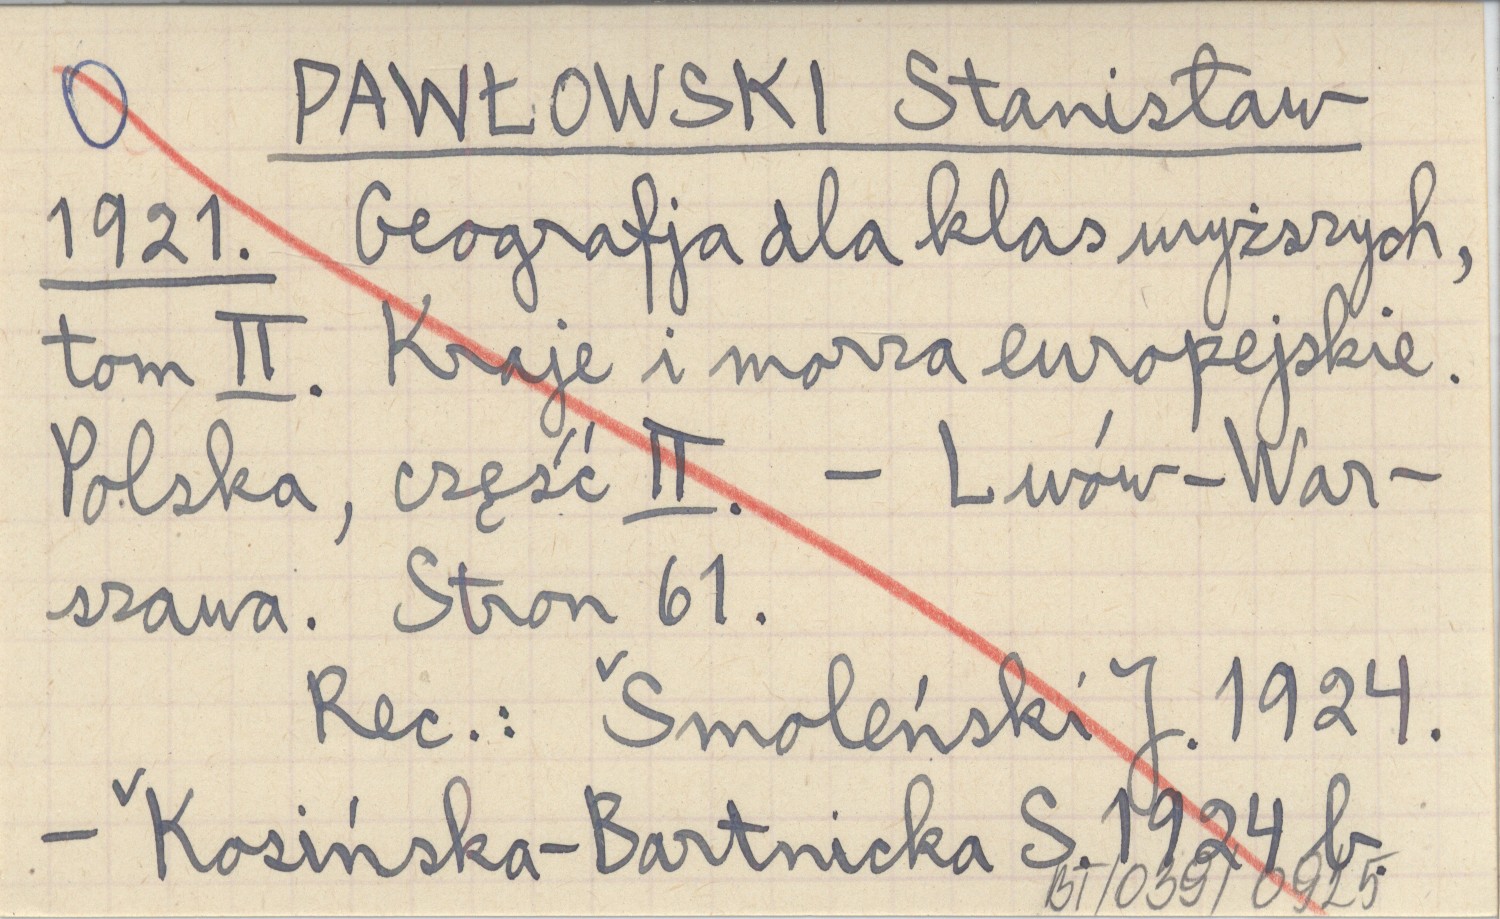 PAWŁOWSKI Stanisław
1921. Geografja dla klas wyższych,
tom II. Kraje i morza europejskie.
Polska, część II. – Lwów-War-
szawa. Stron 61.
Rec.: ˅Smoleński J. 1924.
– ˅Kosińska-Bartnicka S. 1924 b.
BT/039/0925